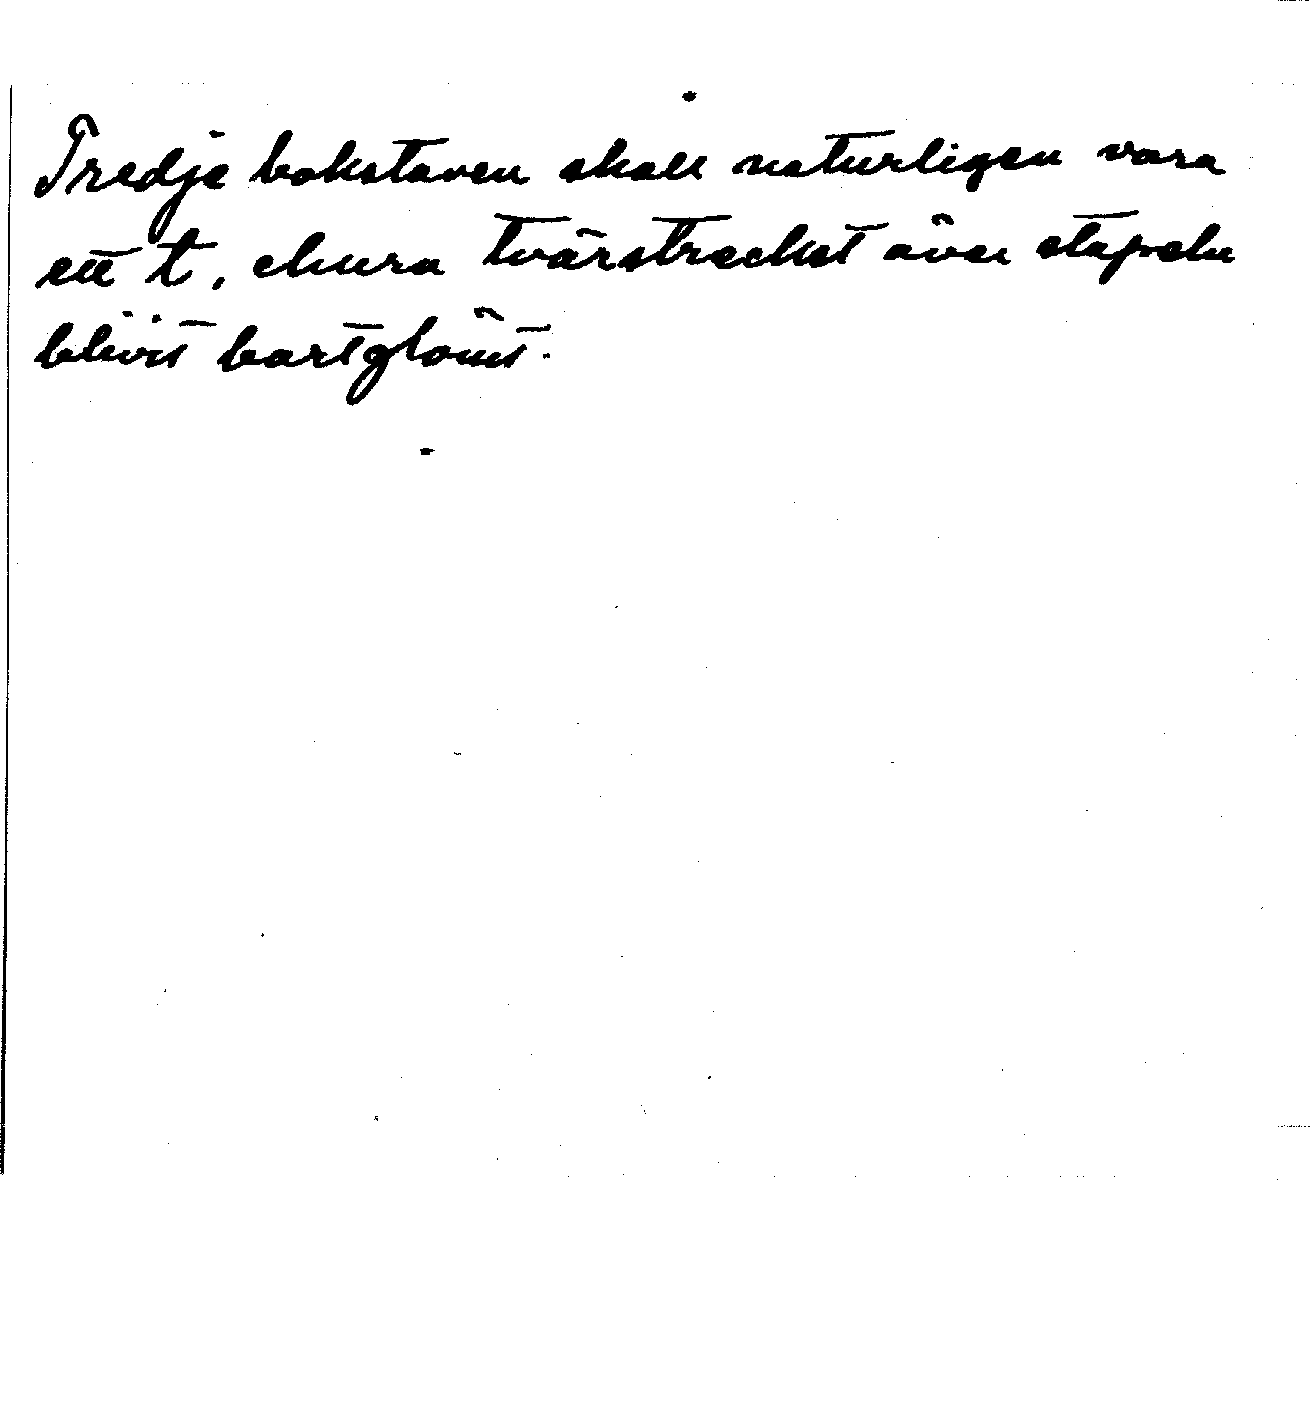 Tredje bokstaven skall naturligen vara
ett t, ehuru tvärstrecket över stapeln
blivit bortglömt.